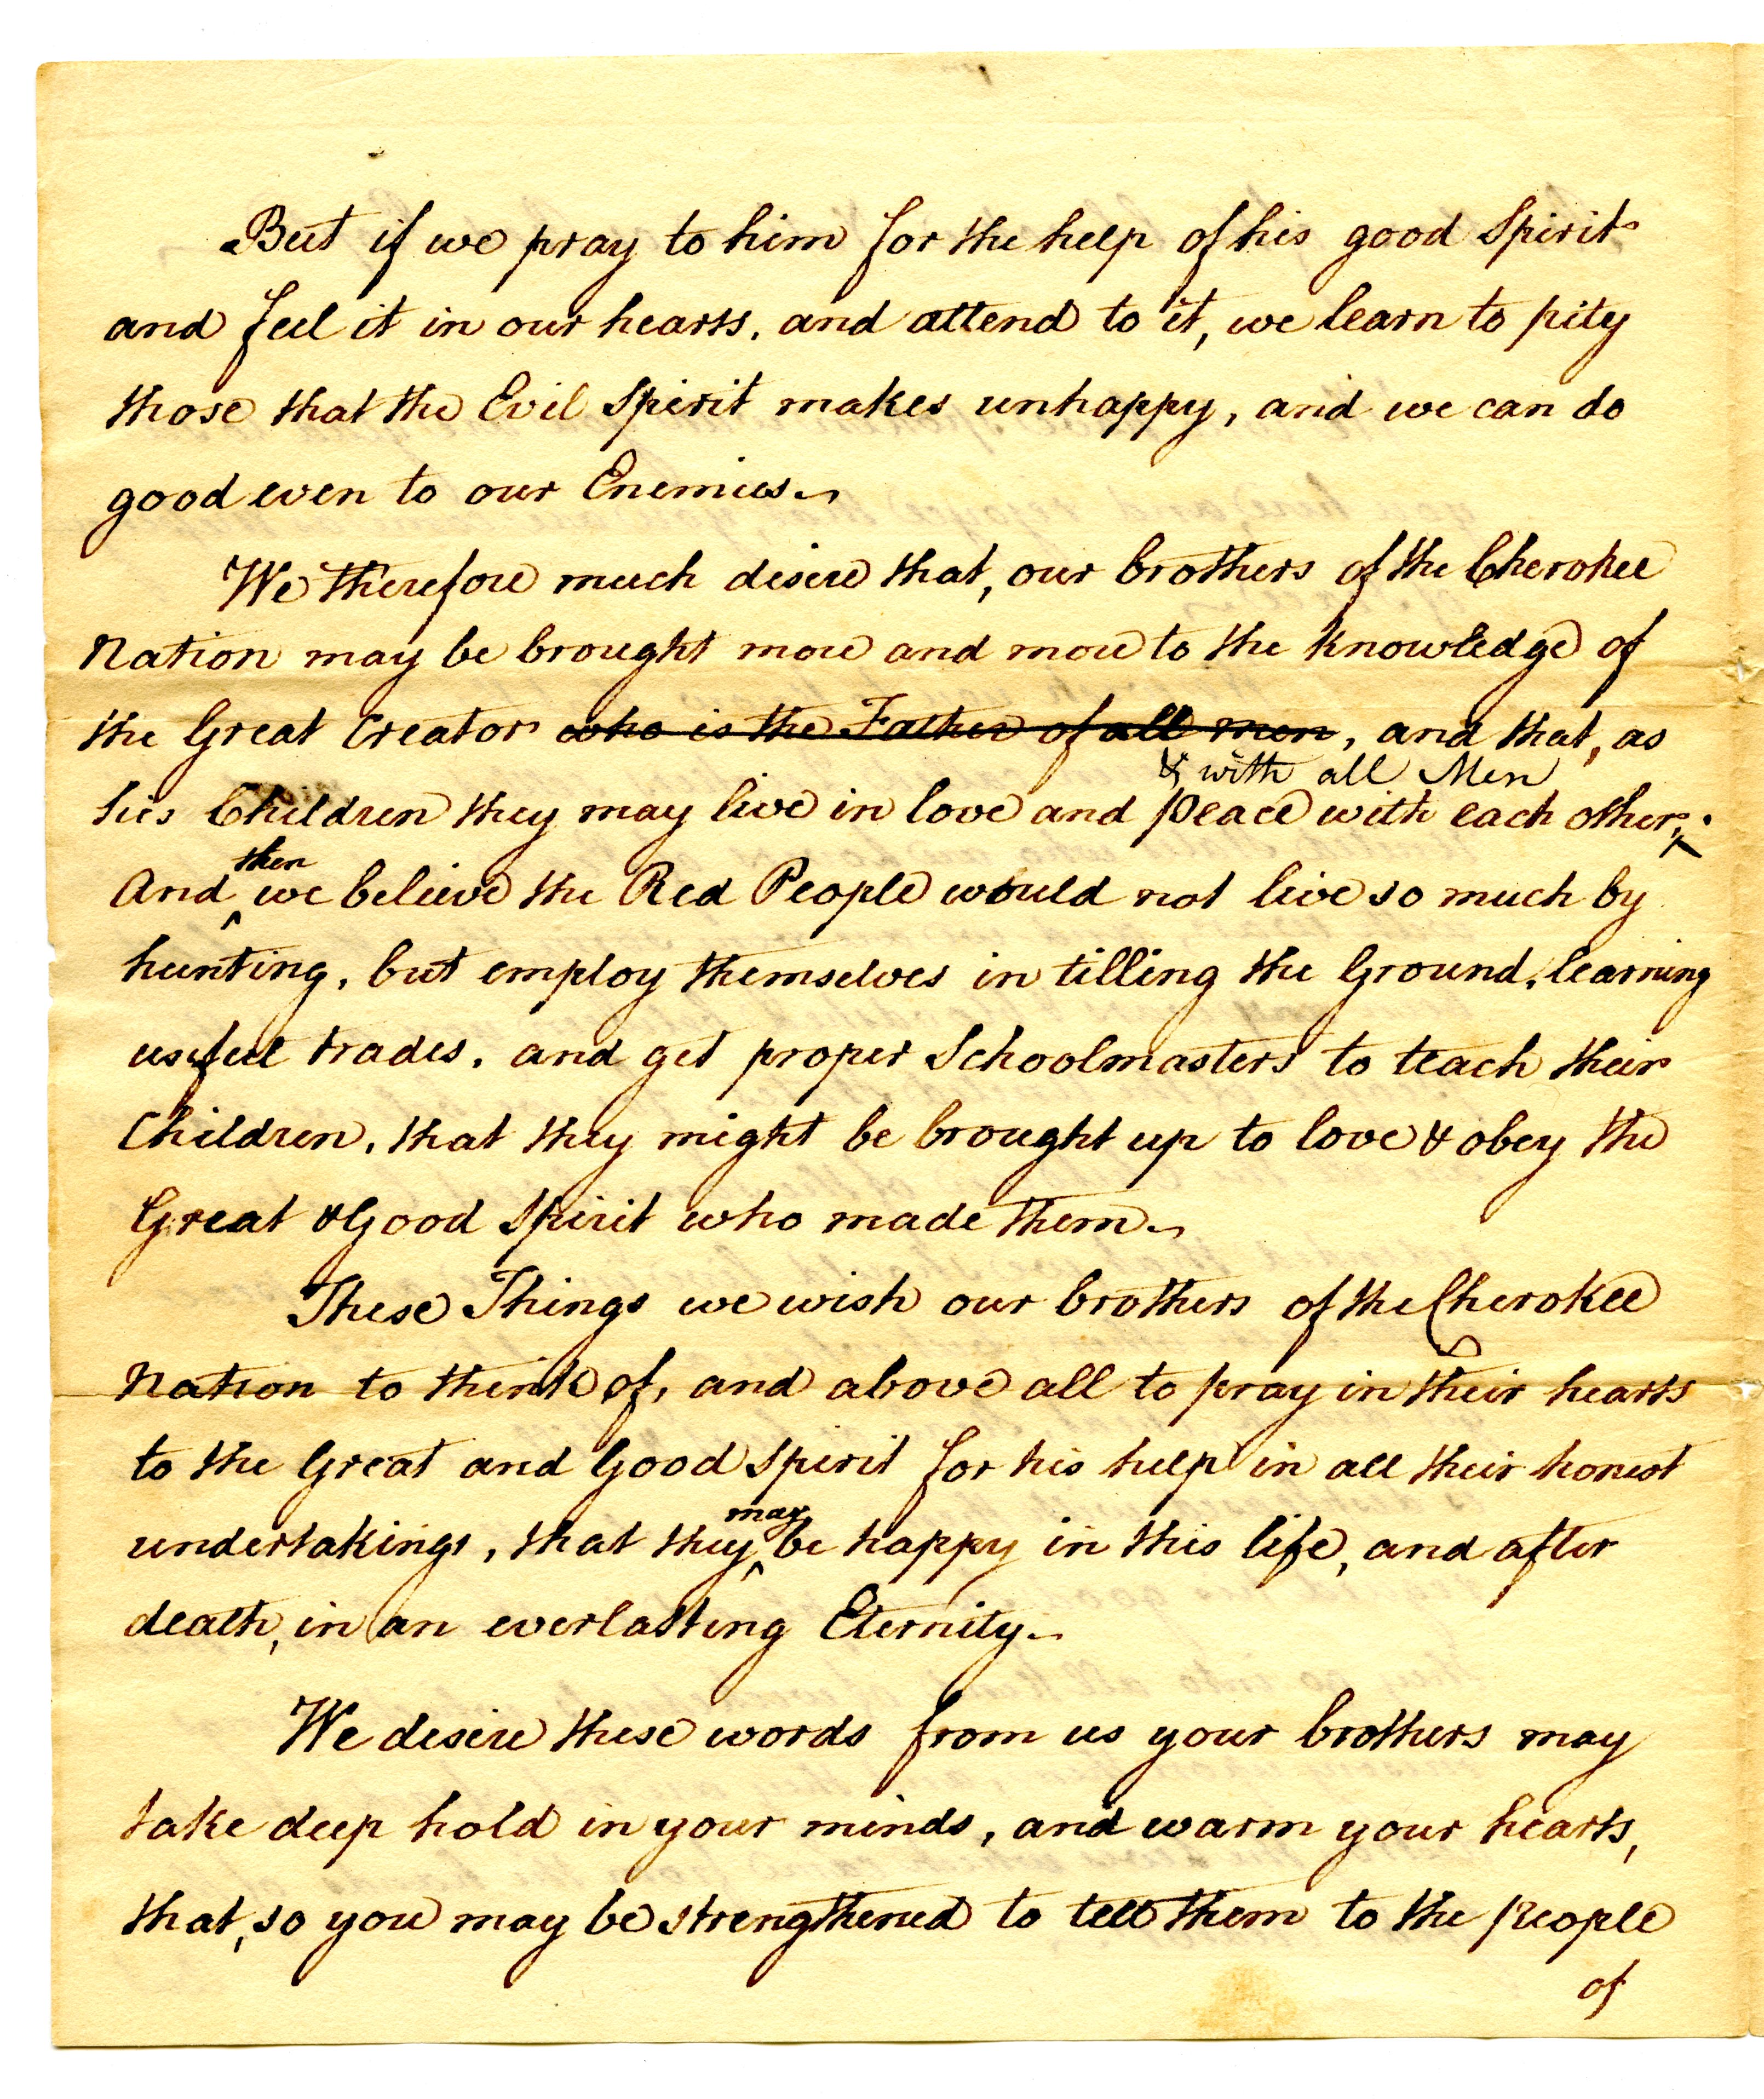 But if we pray to him for the help of his good Spirit
and feel it in our hearts, and attend to it, we learn to pity
those that the Evil Spirit makes unhappy, and we can do
good even to our Enemies.
We therefore much desire that, our brothers of the Cherokee
Nation may be brought more and more to the knowledge of
the Great Creator who is the Father of all men, and that, as
& with all Men
his Children they may live in love and peace with each other.
then
And we believe the Red People would not live so much by
hunting, but employ themselves in tilling the Ground, learning
useful trades, and get proper Schoolmasters to teach their
Children, that they might be brought up to love & obey the
Great & Good Spirit who made them.
These Things we wish our brothers of the Cherokee
Nation to think of, and above all to pray in their hearts
to the Great and Good Spirit for his help in all their honest
may
undertakings, that they be happy in this life, and after
death, in an everlasting Eternity.
We desire these words from us your brothers may
take deep hold in your minds, and warm your hearts,
that, so you may be strengthened to tell them to the people
of